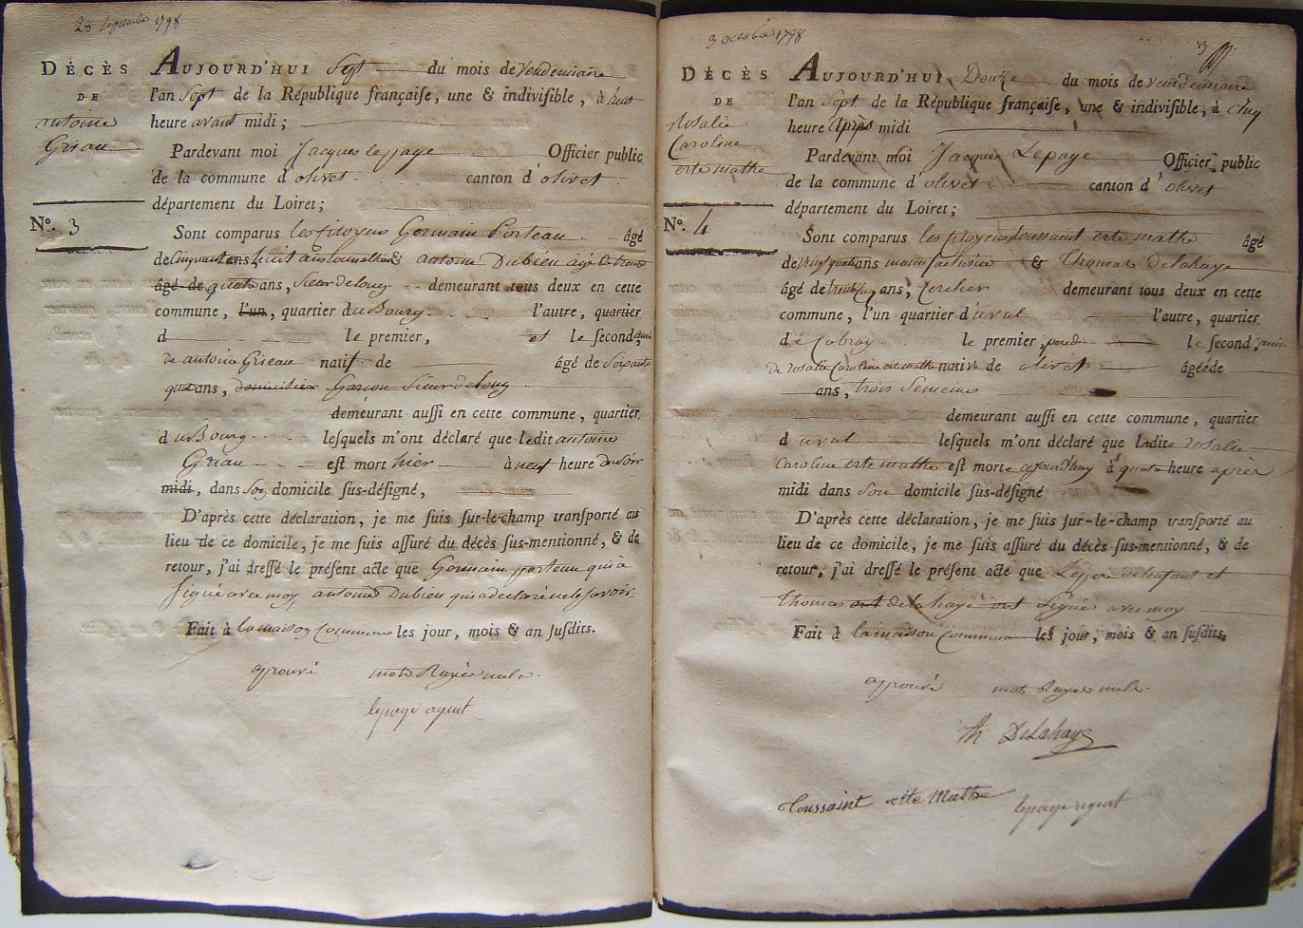 28 septembre 1798
DÉCÈS
DE
antoine
Griau
N°. 3
AUJOURD'HUI Sept du mois de Vendemiaire
l'an Sept de la République françaiſe, une & indiviſible, à huit
heure avant midi ;
Pardevant moi Jacques lepage Officier public
de la commune d'olivet canton d'olivet
département du Loiret ;
Sont comparus les citoyens Germain Porteau âgé
de cinquante ans & antoine Dubieu
âgé de quatre ans, demeurant tous deux en cette
commune, l'un, quartier du Bourg l'autre, quartier
d le premier, et le second
de antoine Griau natif de âgé de Soixante
ans, Garcon
demeurant auſſi en cette commune, quartier
du Bourg leſquels m'ont déclaré que ledit antoine
Griau eſt mort hier à neuf heure du Soir
midi, dans Son domicile ſus-déſigné,
D'après cette déclaration, je me ſuis ſur-le-champ tranſporté au
lieu de ce domicile, je me ſuis aſſuré du décès ſus-mentionné, & de
retour, j'ai dreſſé le préſent acte que Germain porteau qui a
Signé avec moy antoine Dubieu qui a declaré ne le Savoir
Fait à la maison Commune les jour, mois & an ſuſdits.
aprouvé mots Rayés nuls
lepage agent
3 octobre 1798
3
DÉCÈS
DE
Rosalie
Caroline
erte mathe
N°. 4
AUJOURD'HUI Douze du mois de vendemiaire
l'an Sept de la République françaiſe, une & indiviſible, à cinq
heure Après midi
Pardevant moi Jacques Lepage Officier public
de la commune d'olivet canton d'olivet
département du Loiret ;
Sont comparus les citoyens toussaint erte mathe âgé
de ans & Thomas Delahaye
âgé de ans, demeurant tous deux en cette
commune, l'un quartier d'uval l'autre, quartier
d le premier, le ſecond
de rosalie Caroline erte mathe native de olivet âgée de
ans, trois Semenes
demeurant auſſi en cette commune, quartier
d'uval leſquels m'ont déclaré que ladite rosalie
Caroline erte mathe eſt morte à quatre heure après
midi dans Son domicile ſus-déſigné
D'après cette déclaration, je me ſuis ſur-le-champ tranſporté au
lieu de ce domicile, je me ſuis aſſuré du décès ſus-mentionné, & de
retour, j'ai dreſſé le préſent acte que Le père de lenfant et
Thomas delahaye ont Signés avec moy
Fait à la maison Commune les jour, mois & an ſuſdits.
aprouvé mots Rayés nuls
Th DeLahaye
Toussaint erte Mathe lepage agent